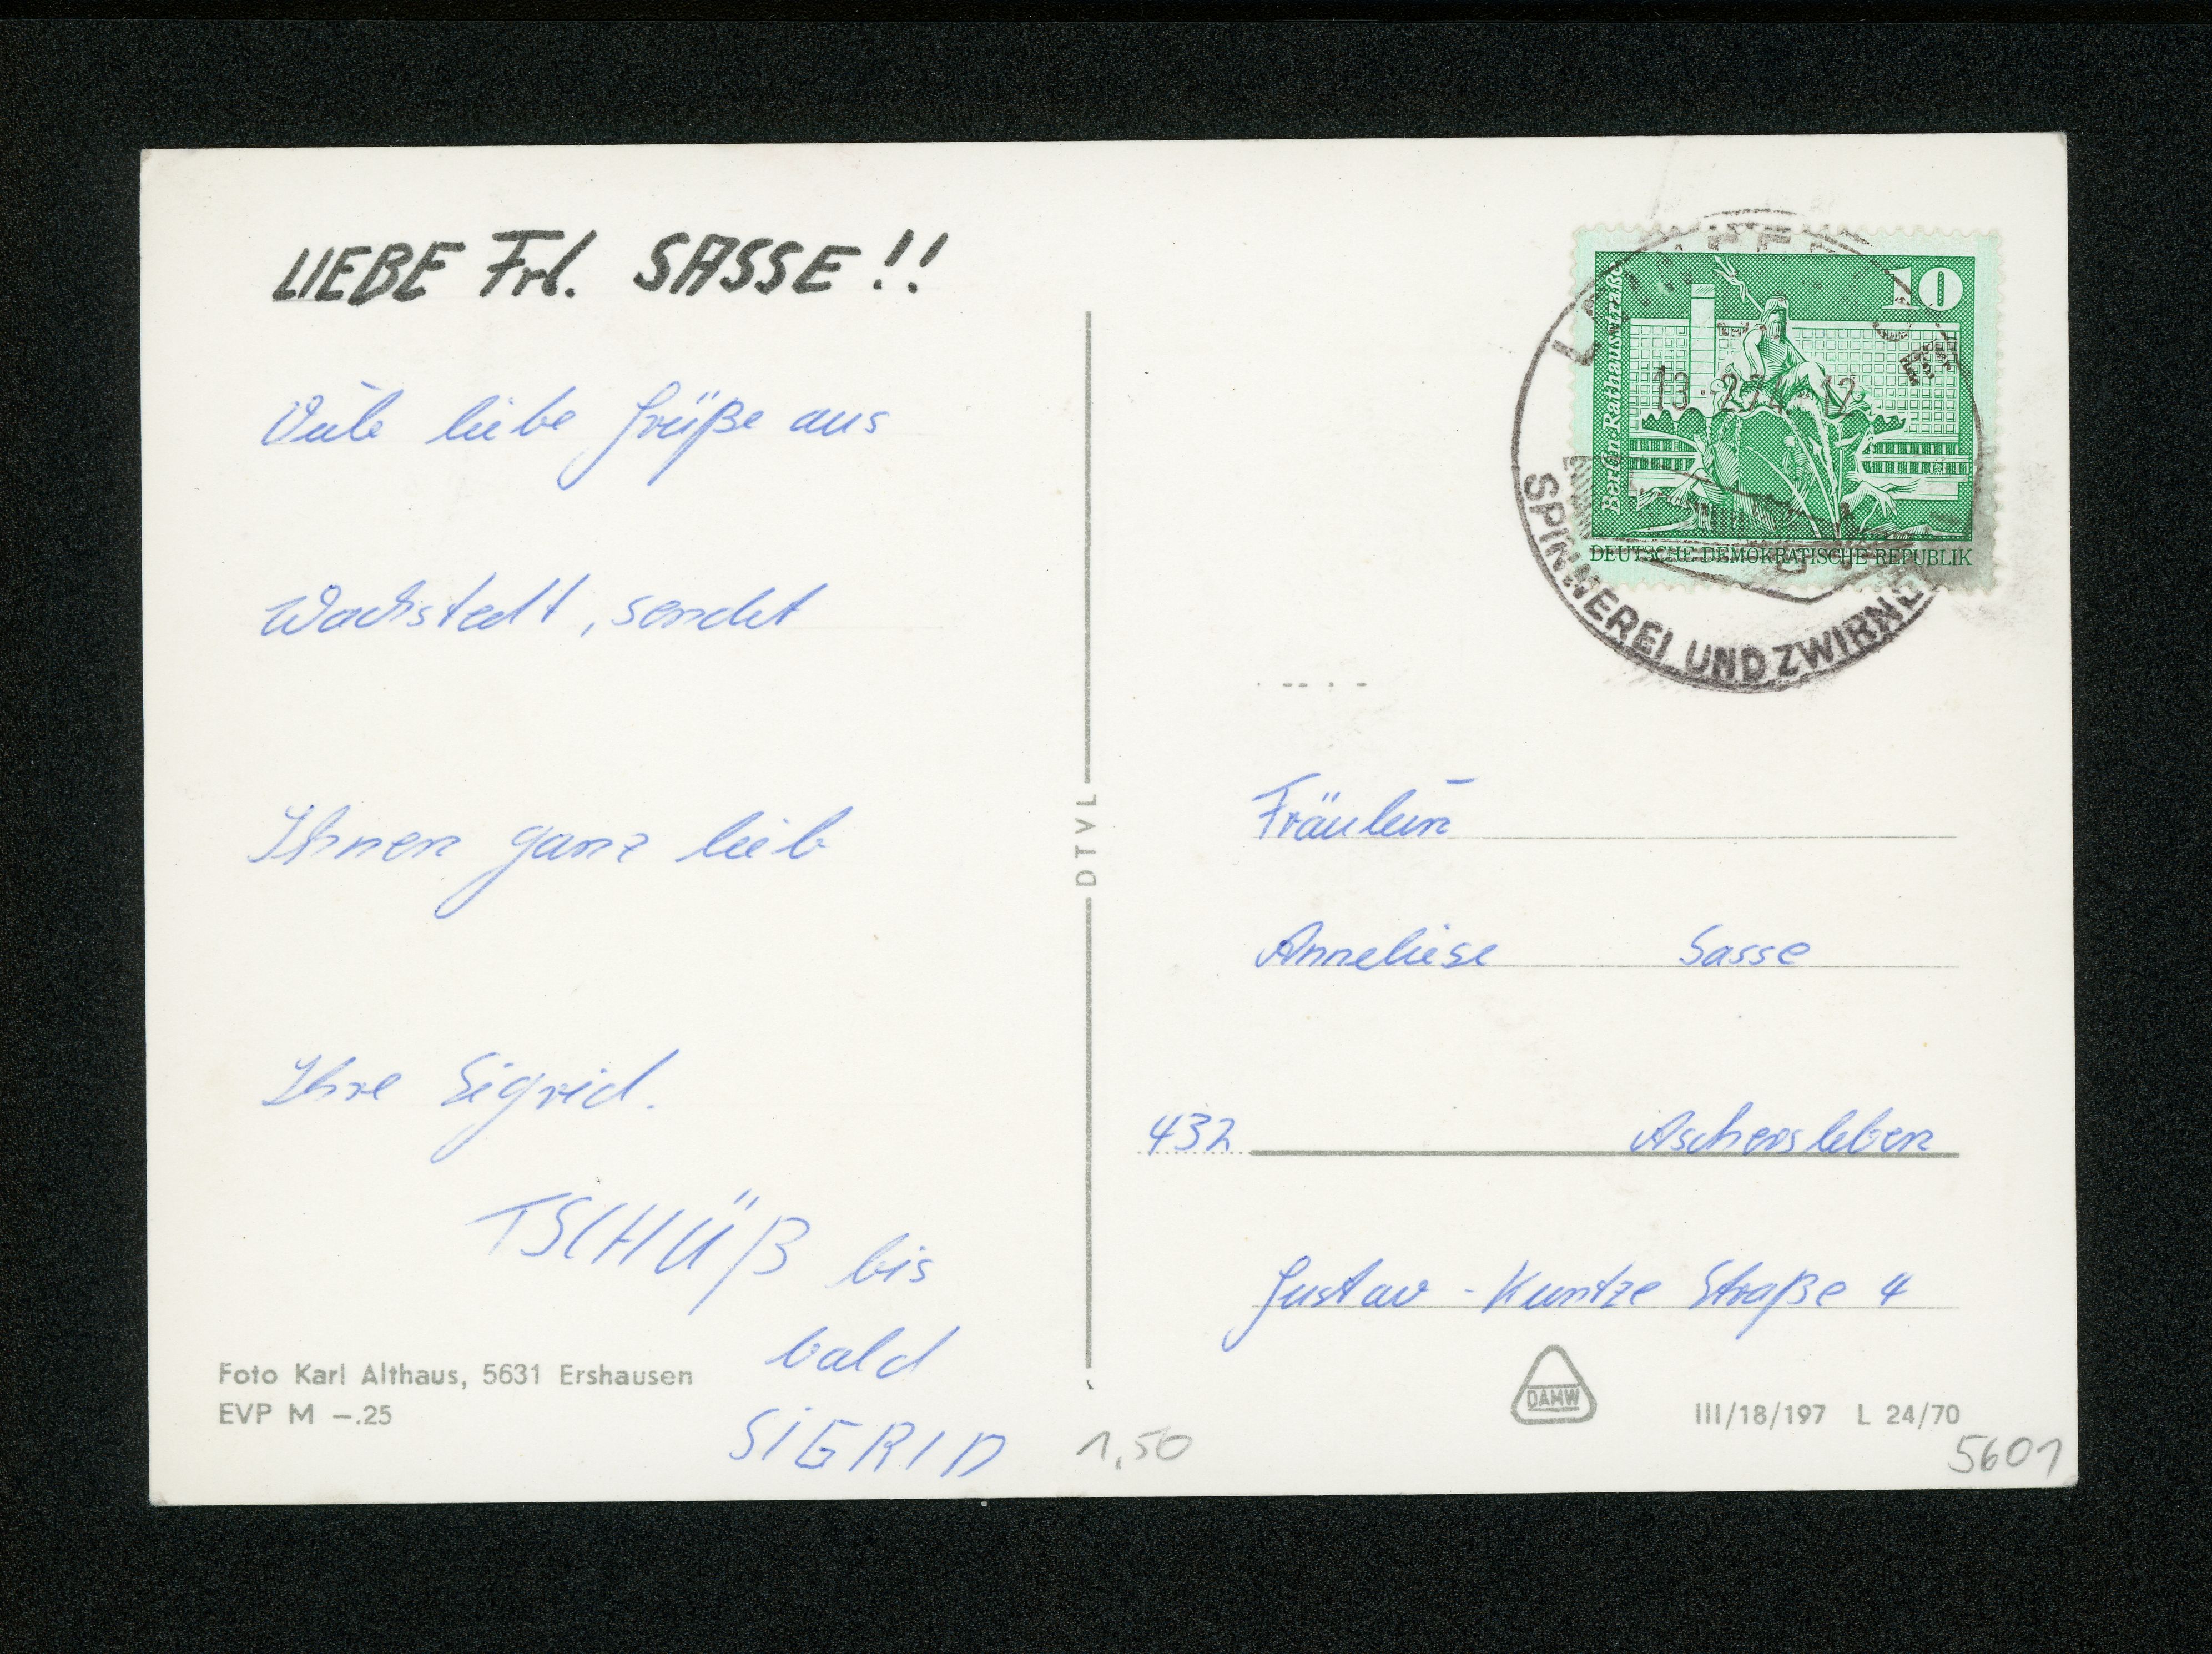 LIEBE Frl. SASSE!!
Viele liebe Grüße aus
Wachstedt, sendet
Ihnen ganz lieb
Ihre Sigrid.
TSCHÜß bis
bald
SIGRID
Foto Karl Althaus, 5631 Ershausen
EVP M –.25
DTVL
10
Berlin-Rathausstraße
DEUTSCHE DEMOKRATISCHE REPUBLIK
SPINNEREI UND
Fräulein
Anneliese Sasse
432 Aschersleben
Gustav-Kuntze Straße 4
DAMW
III/18/197 L 24/70
1,50
5601